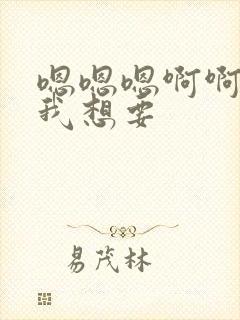 嗯嗯嗯啊啊
我想要
易茂林